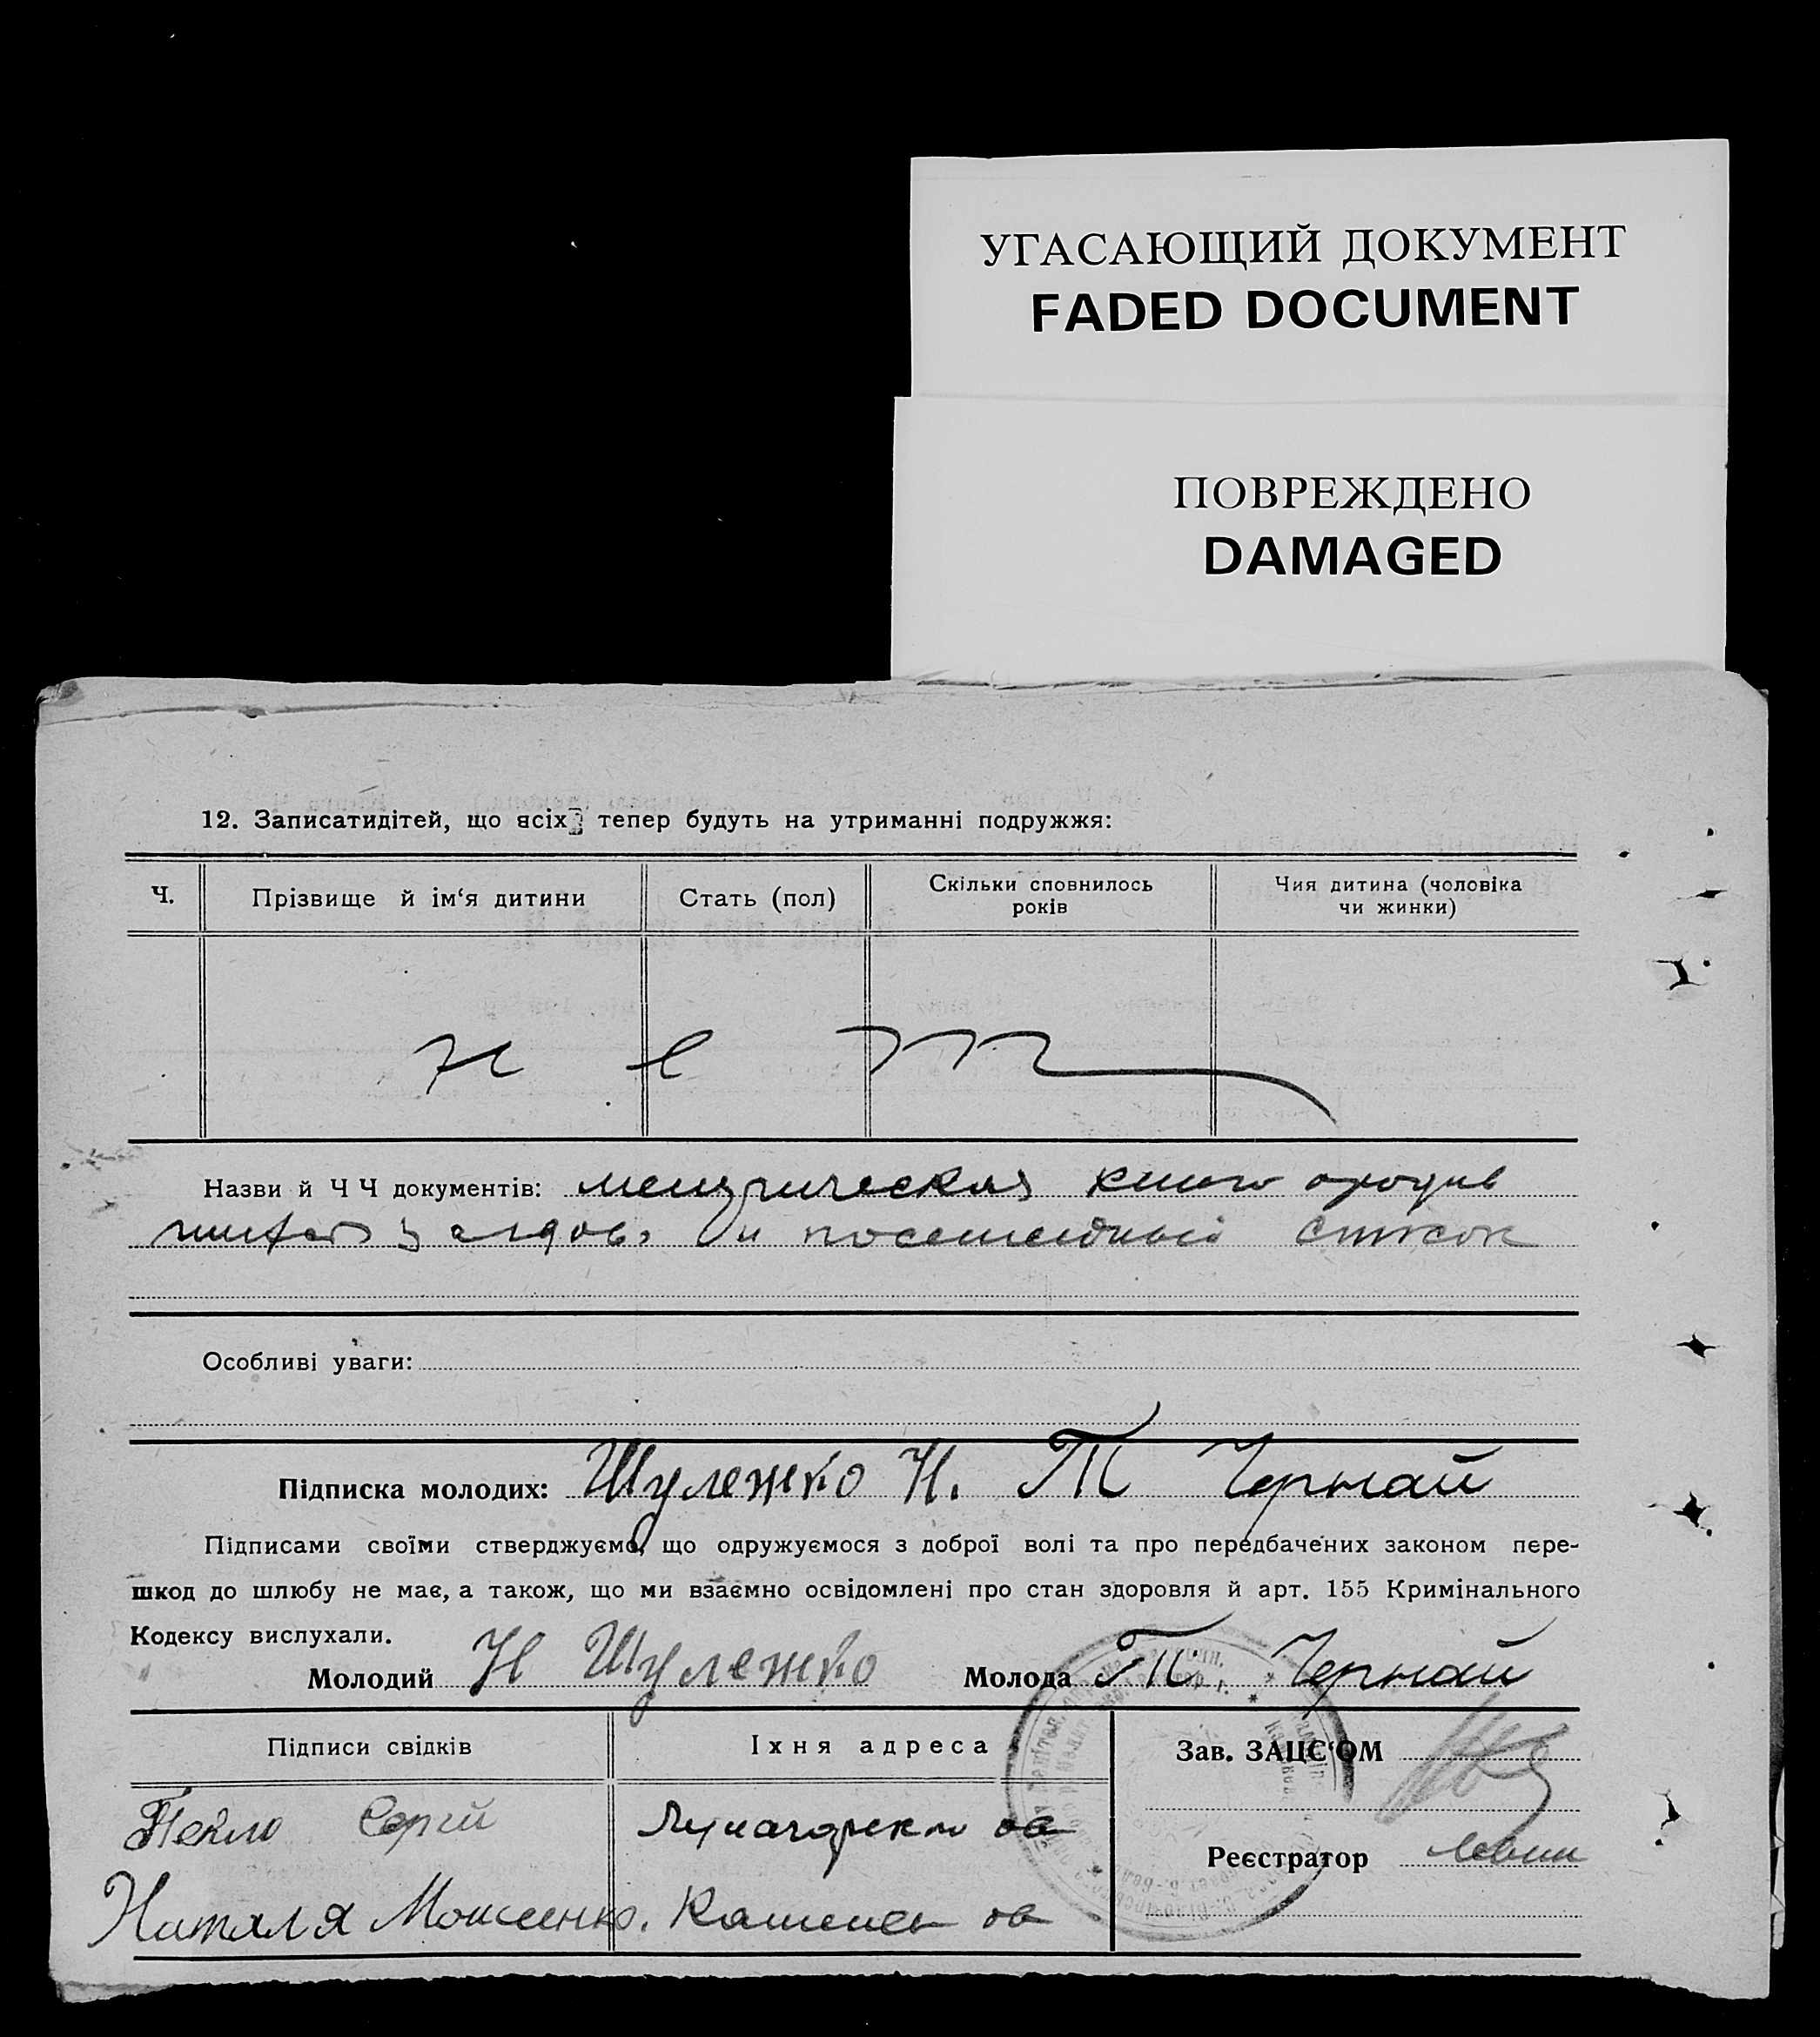 УГАСАЮЩИЙ ДОКУМЕНТ
FADED DOCUMENT
ПОВРЕЖДЕНО
DAMAGED
12. Записатидітей, що всіх тепер будуть на утриманні подружжя:
Ч.
Прізвище й ім‘я дитини
Стать (пол)
Скільки сповнилось
років
Чия дитина (чоловіка
чи жинки)
нет
Назви й Ч Ч документів: метрическая
и список
Особливі уваги:
Підписка молодих: Шулежко Н. Т Чернай
Підписами своїми стверджуємо, що одружуємося з доброї волі та про передбачених законом пере-
шкод до шлюбу не має, а також, що ми взаємно освідомлені про стан здоровля й арт. 155 Кримінального
Кодексу вислухали.
Молодий Н Шулежко Молода Т Чернай
Підписи свідків
Іхня адреса
Зав. ЗАЦС‘ОМ
Сергій
Реєстратор
Наталя Моисеенко.